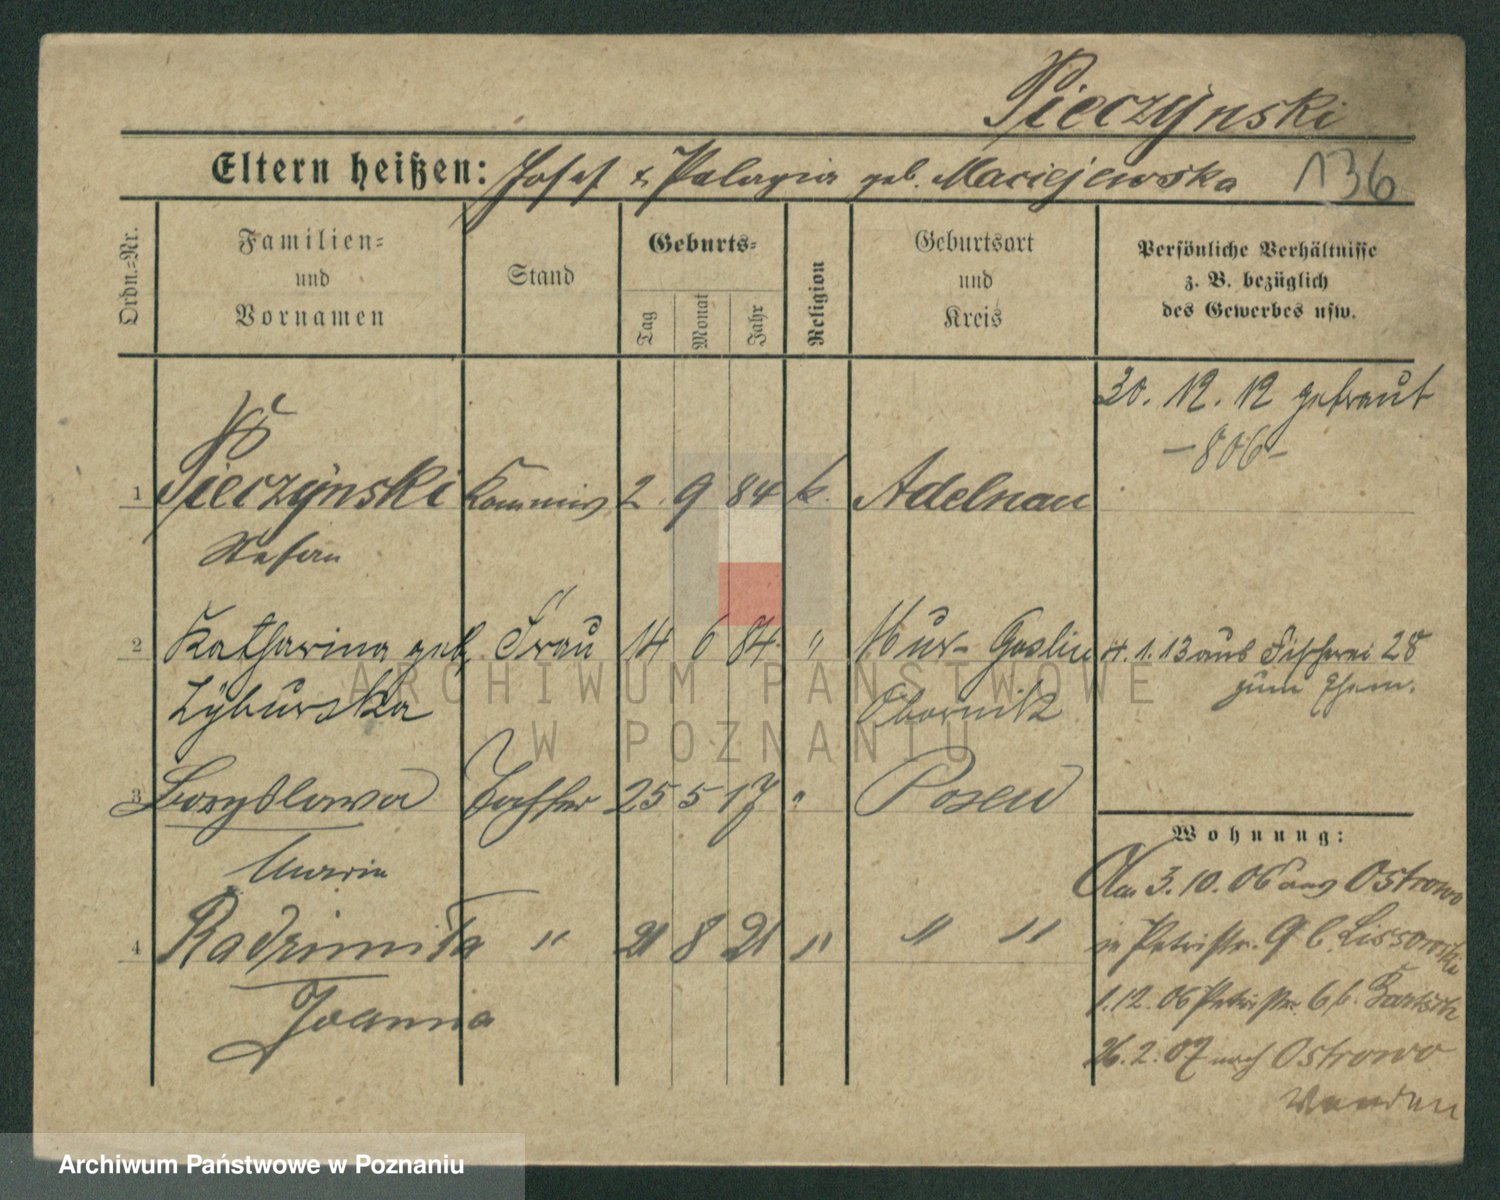 Pieczynski
Eltern heißen: Josef & Pelagia geb. Maciejewska 136
Ordn.-Nr.
Familien- und Vornamen
Stand
Geburts-
Tag Monat Jahr
Religion
Geburtsort und Kreis
Persönliche Verhältnisse
z. B. bezüglich
des Gewerbes usw.
30. 12. 12 getraut
-806-
1 Pieczynski Kommis 2 9 84 k. Adelnau
Stefan
2 Katharina geb. Frau 14 6 84 " Mur-Goslin
Zyburska Obornik
4. 1. 13 aus Fischerei 28
zum Ehem.
3 Boryslawa Tochter 25 5 17 " Posen
Maria
4 Radzimila " 21 8 21 " " "
Joanna
Wohnung:
3. 10. 06 aus Ostrowo
in Petristr. 9 b. Lissowski
1. 12. 06 Petristr. 6 b.
26. 2. 07 nach Ostrowo
ARCHIWUM PAŃSTWOWE
W POZNANIU
Archiwum Państwowe w Poznaniu